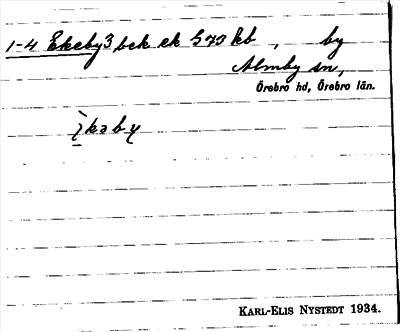 1-4 Ekeby 3 bek ek 573 kb , by
Almby sn,
Örebro hd, Örebro län.
ìkəby
KARL-ELIS NYSTEDT 1934.